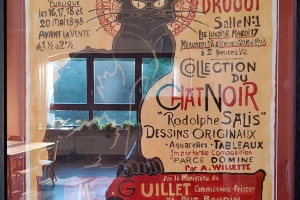 PUBLIQUE
les 16, 17, 18 et
20 MAI 1898
AVANT LA VENTE
de 1h à 2h ½
DROUOT
Salle N:1
Les LUNDI 16, MARDI 17
à 2 heures ½
COLLECTION
DU
CHAT NOIR
"Rodolphe SALIS"
DESSINS ORIGINAUX
- Aquarelles - TABLEAUX
Importante Composition
"PARCE DOMINE"
Par A. WILLETTE
Par le Ministère de
Me GUILLET Commissaire-Priseur
RUE BAUDIN